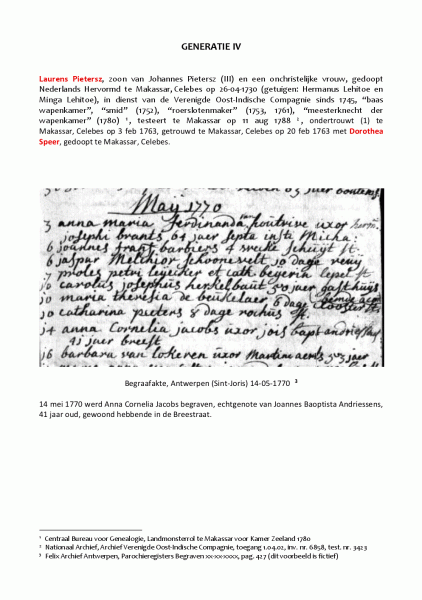 GENERATIE IV
Laurens Pietersz, zoon van Johannes Pietersz (III) en een onchristelijke vrouw, gedoopt
Nederlands Hervormd te Makassar, Celebes op 26-04-1730 (getuigen: Hermanus Lehitoe en
Minga Lehitoe), in dienst van de Verenigde Oost-Indische Compagnie sinds 1745, “baas
wapenkamer”, “smid” (1752), “roerslotenmaker” (1753, 1761), “meesterknecht der
wapenkamer” (1780) ¹, testeert te Makassar op 11 aug 1788 ², ondertrouwt (1) te
Makassar, Celebes op 3 feb 1763, getrouwd te Makassar, Celebes op 20 feb 1763 met Dorothea
Speer, gedoopt te Makassar, Celebes.
May 1770
3 anna maria Ferdinanda houtvive uxor
josephi brants 69 jaer septa insti Micha:
6 joannes frans barbiers 4 weke schuyt st.
6 jaspar Melchior schoonevelt 10 dage
7 proles petri leyeiker et cath. begerin lepel st
10 carolus josephus herkelbaut 50 jaer gasthuys
10 maria theresia de beukelaer 8 dage
10 catharina pieters 8 dage rochus st
14 anna Cornelia jacobs uxor jois bapt andriessens
41 jaer breest
16 barbara van lokeren uxor Martini aerts 53 jaer
Begraafakte, Antwerpen (Sint-Joris) 14-05-1770 ³
14 mei 1770 werd Anna Cornelia Jacobs begraven, echtgenote van Joannes Baoptista Andriessens,
41 jaar oud, gewoond hebbende in de Breestraat.
¹ Centraal Bureau voor Genealogie, Landmonsterrol te Makassar voor Kamer Zeeland 1780
² Nationaal Archief, Archief Verenigde Oost-Indische Compagnie, toegang 1.04.02, inv. nr. 6858, test. nr. 3423
³ Felix Archief Antwerpen, Parochieregisters Begraven xx-xx-xxxx, pag. 427 (dit voorbeeld is fictief)